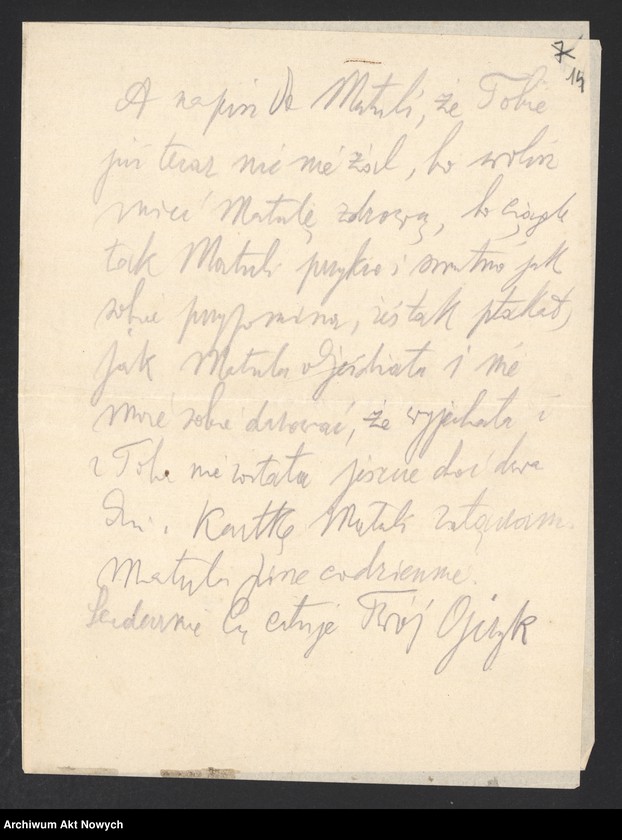 7
14
A napisz do Matuli, że Tobie
już teraz nic nie żal, bo wolisz
mieć Matulę zdrową, bo ciągle
tak Matuli przykro i smutno jak
sobie przypomina, żeś tak płakał,
jak Matula odjeżdżała i nie
może sobie darować, że wyjechała i
z Tobą nie została jeszcze choć dwa
dni. Kartkę Matuli załączam.
Matula pisze codziennie.
Serdecznie Cię całuję Twój Ojczyk
Archiwum Akt Nowych